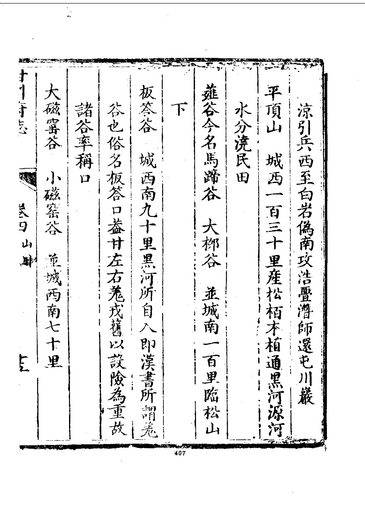 涼引兵西至白岩偽南攻浩亹潛師還屯川巖
平頂山　城西一百三十里産松栢木植通黑河源河
水分澆民田
薤谷今名馬蹄谷　大柳谷　並城南一百里臨松山
下
板答谷　城西南九十里黑河所自入即漢書所謂羗
谷也俗名板答口葢甘左右羗戎舊以設險為重故
諸谷率稱口
大磁窰谷　小磁窑谷　並城西南七十里
卷四 山川
407